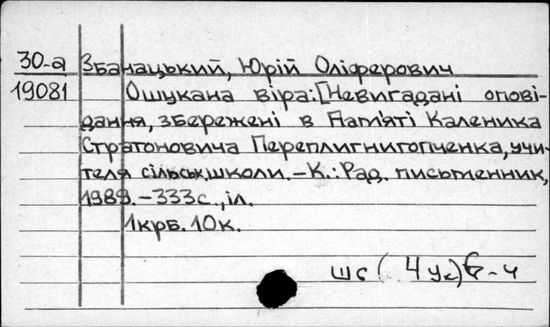 30-а Збанацький, Юрій Оліферович
19081 Ошукана віра: [Невигадані опові-
дання, збережені в пам'яті Каленика
Стратоновича Переплигнигопченка, учи-
теля сільськ. школи. - К.: Рад. письменник,
1989. - 333с., іл.
1крб. 10к.
шс ( 4 у